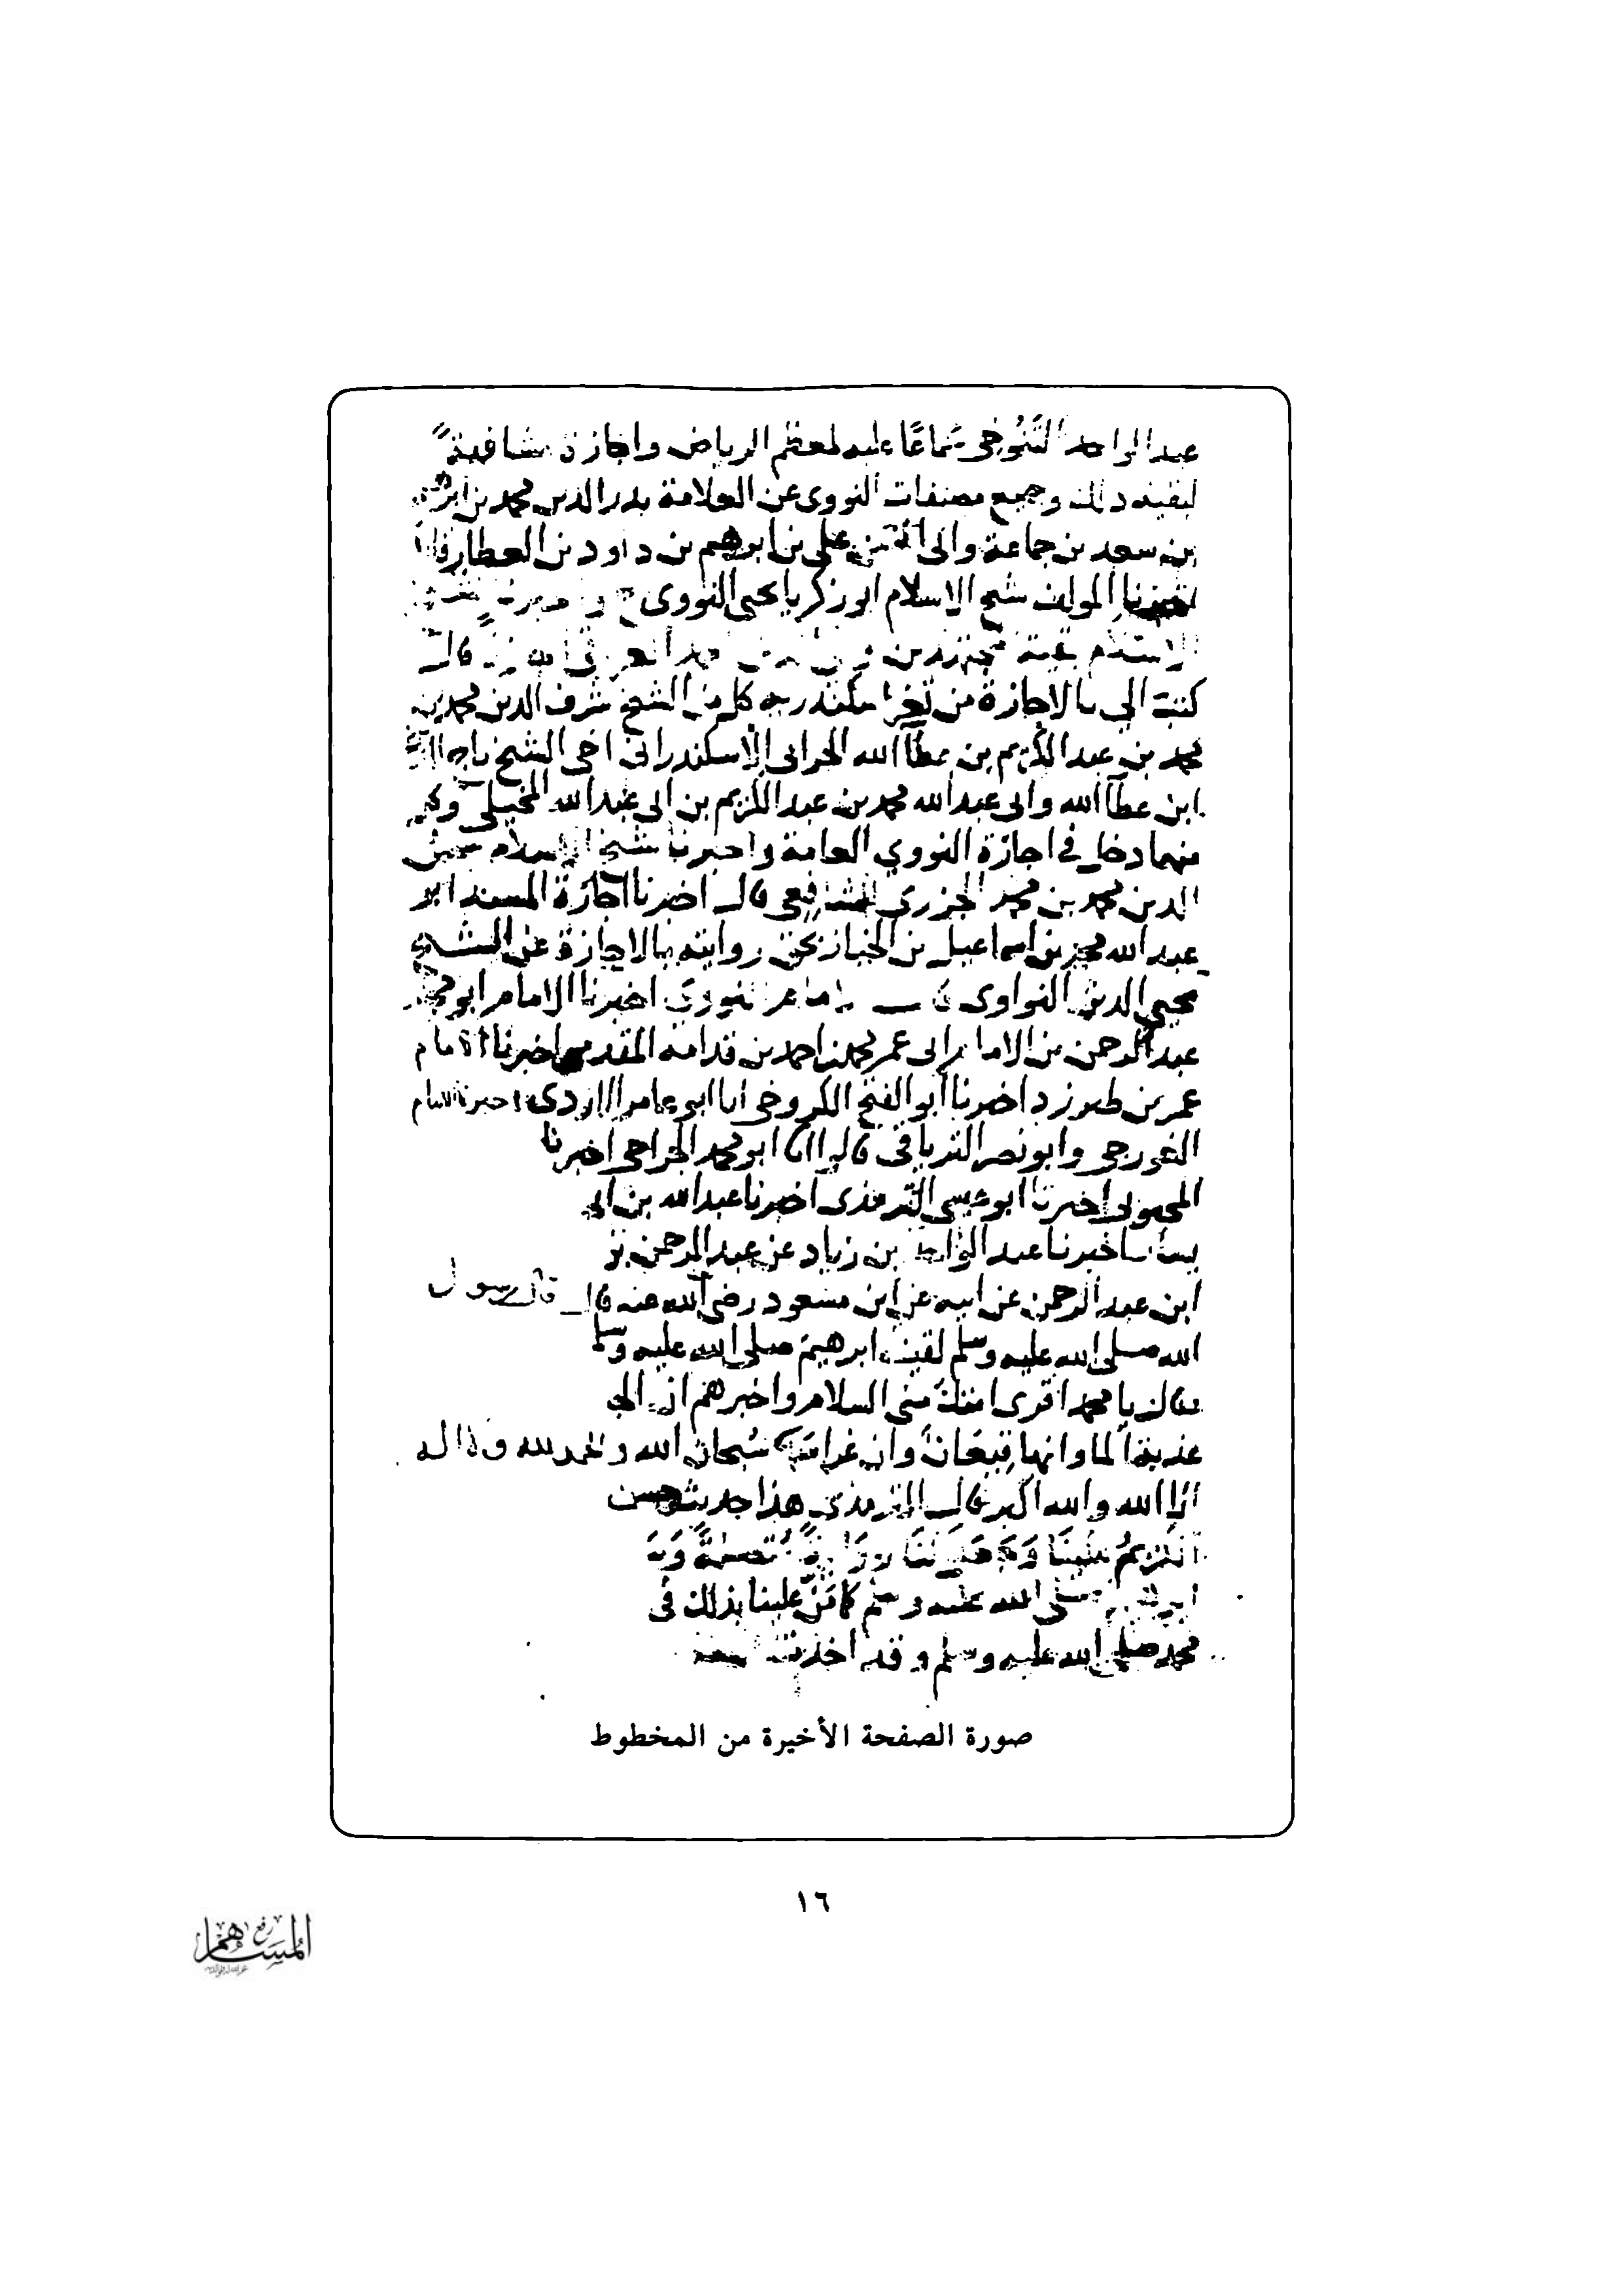 عبد الواحد التَّنُوخي سَماعًا عليه لمعظم الرياض واجازة مشافهةً
لبقيته ذلك وجميع مصنفات النووي عن العلامة بدر الدين محمد بن ابرهيم
بن سعد بن جماعة وابى الحسن علي بن ابرهيم بن داود بن العطار قالا
اخبرنا المولف شيخ الاسلام ابو زكريا يحيى النووي ح
الاسلام بقية المجتهدين قال
كتب الي بالاجازة من ثغر اسكندرية كل من الشيخ شرف الدين محمد بن
محمد بن عبد الكريم بن عطآ الله الجرابى الاسكندرانى اخى الشيخ تاج الدين
ابن عطآ الله وابى عبد الله محمد بن عبد الكريم بن ابى عبد الله
منهما دخل في اجازة النووي العامة واخبرنا شيخ الاسلام شمس
الدين محمد بن محمد الجزري الشافعي قال اخبرنا اجازة المسند ابو
عبد الله محمد بن اسماعيل بن الخباز بحق روايته بالاجازة عن الشيخ
محيي الدين النواوى اخبرنا الامام ابو محمد
عبد الرحمن بن الامام ابى عمر محمد بن احمد بن قدامة المقدسي اخبرنا الامام
عمر بن طبرزد اخبرنا ابو الفتح الكروخي انا ابو عامر الازدى اخبرنا الامام
الغورجي وابو نصر الترياقى قالوا انا ابو محمد الجراحي اخبرنا
المحبوبى اخبرنا ابو عيسى الترمذى اخبرنا عبد الله بن ابى
اخبرنا عبد الواحد بن زياد عن عبد الرحمن بن
ابن عبد الرحمن عن ابيه عن ابن مسعود رضى الله عنه قال قال رسول
الله صلى الله عليه وسلم لقيت ابرهيم صلى الله عليه وسلم
فقال يا محمد اقرى امتك منى السلام واخبرهم ان الجـ
عذبة الما وانها قيعان وان غراسها سبحان الله والحمد لله ولا اله
الا الله والله اكبر قال الترمذى هذا حديث حسن
صلى الله عليه وسلم كما منّ علينا بذلك فى
محمد صلى الله عليه وسلم وقد اخذت
صورة الصفحة الأخيرة من المخطوط
١٦